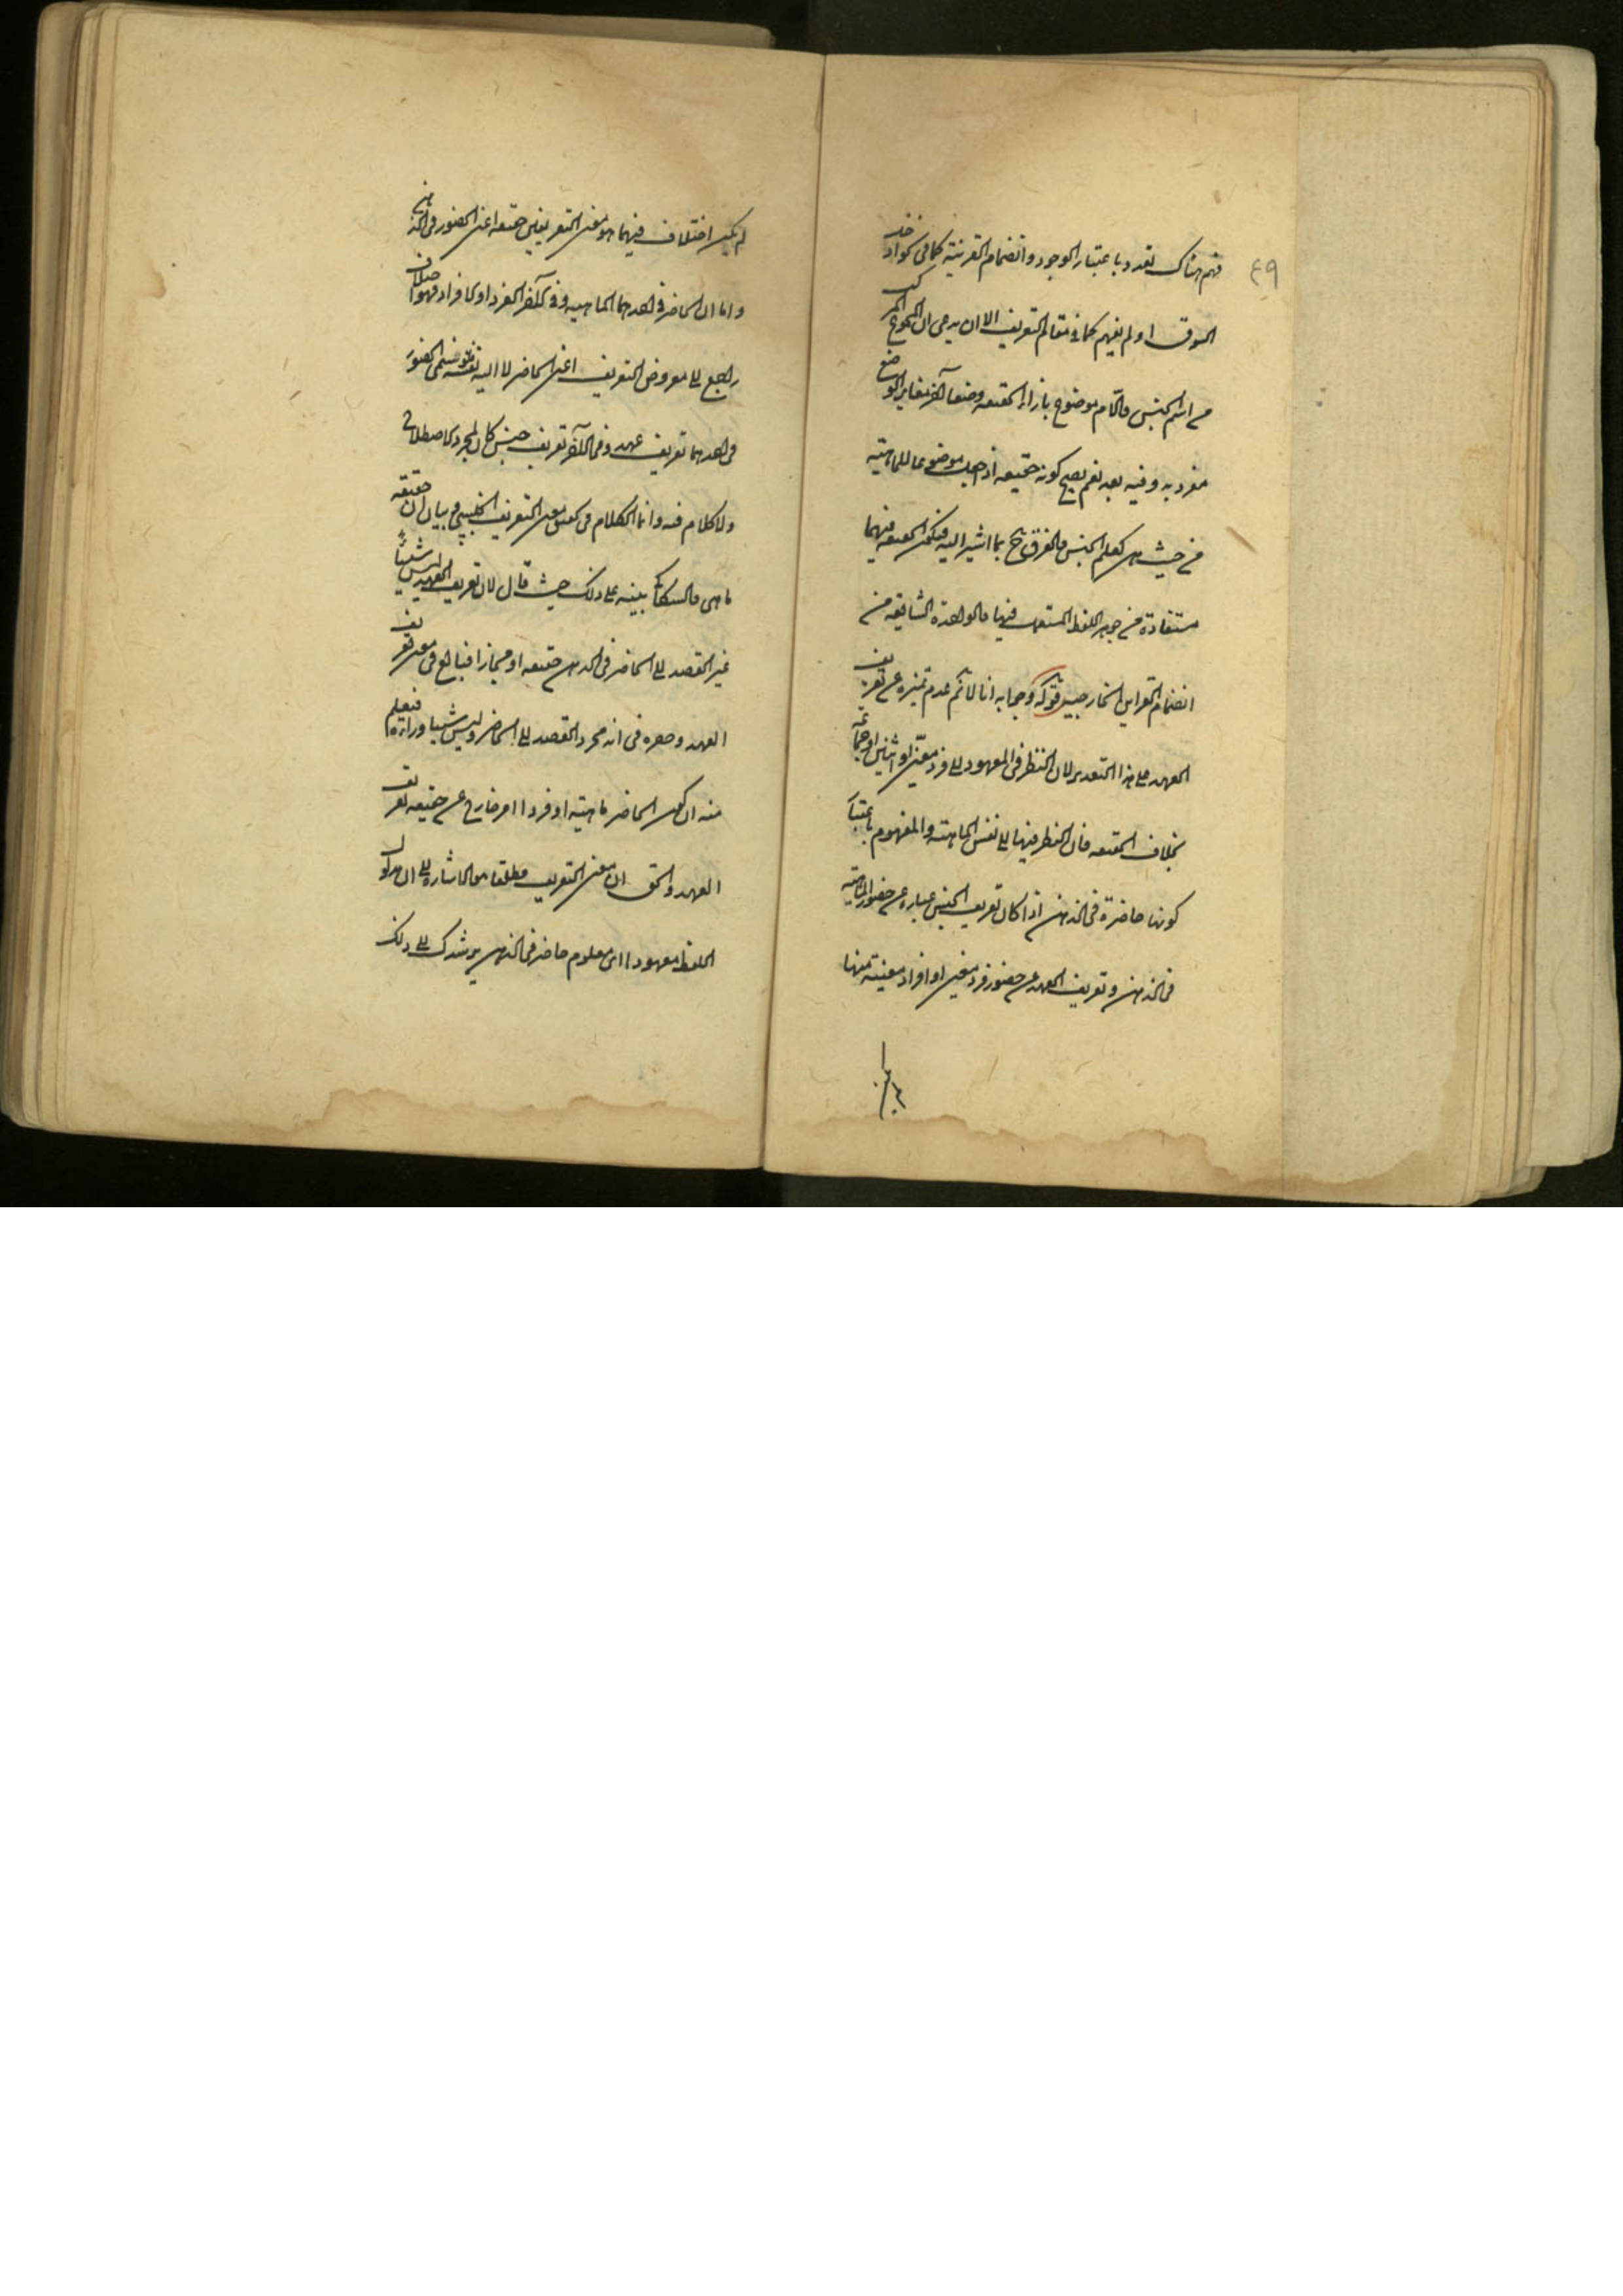 ٤٩
فهم هناك تعدد باعتبار الوجود وانضمام القرينة كما في كواد خل
السوق او لم يفهم كما في مقام التعريف الا ان يدعى ان المجموع المركب
من اسم الجنس واللام موضوع بازاء الحقيقه وضعا آخر مغاير الوضع
مفرديه وفيه بعد نعم يصح كونه حقيقه اذا جعل موضوعا للماهية
من حيث هي كعلم الجنس والفرق ح بما اشير اليه فيكون الحقيقه فيهما
مستفادة من جوهر اللفظ المستعمل فيها والوحدة الشايعه من
انضمام القراين الخارجيه قوله وجوابه انا لا نم عدم تميزه عن تعريف
العهد على هذا التقدير لان النظر في المعهود الى فرد معين او اثنين او جماعة
بخلاف الحقيقه فان النظر فيها الى نفس الماهية والمفهوم باعتبار
كونها حاضرة في الذهن اذا كان تعريف الجنس عبارة عن حضور الماهية
في الذهن وتعريف العهد عن حضور فرد معين او افراد معينة منها
لم يكن اختلاف فيما هو معنى التعريفين حقيقه اعنى الحضور في الذهن
واما ان الحاضر في احدهما الماهيه وفي الآخر الفرد او الافراد فهو اختلاف
راجع الى معروض التعريف اعنى الحاضر لا اليه نفسه فتسمى الحضور
في احدهما تعريف عهد وفي الآخر تعريف جنس كان لمجرد اصطلاح
ولا كلام فيه وانما الكلام في تحقيق معنى التعريف الجنسى وبيان ان حقيقته
ما هى والسكاكى بينه على ذلك حيث قال لان تعريف العهد ليس شيئاً
غير القصد الى الحاضر في الذهن حقيقه او مجازا فبالغ في معنى تعريف
العهد وحصره في انه مجرد القصد الى الحاضر وليس شيئا وراءه فيعلم
منه ان كون الحاضر ماهية او فردا امر خارج عن حقيقه تعريف
العهد والحق ان معنى التعريف مطلقا هو الاشارة الى ان مدلول
اللفظ معهود اى معلوم حاضر في الذهن يرشدك الى ذلك